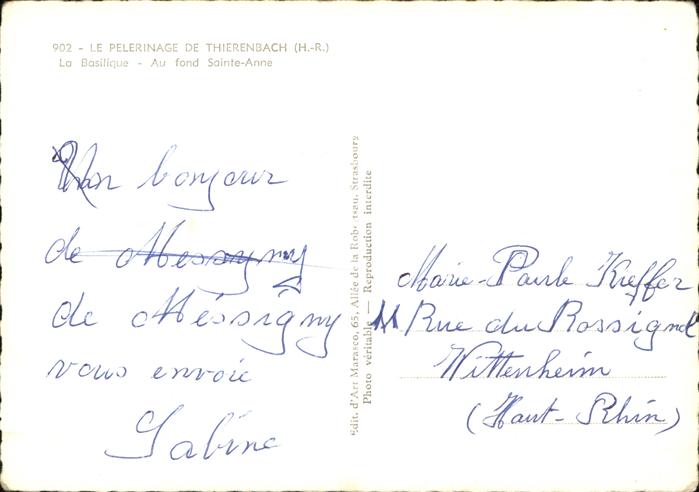 902 - LE PELERINAGE DE THIERENBACH (H.-R.)
La Basilique - Au fond Sainte-Anne
Un bonjour
de Messygny
de Méssigny
vous envoie
Sabine
Edit. d'Art Marasco, 65, Allée de la Robertsau, Strasbourg
Photo véritable — Reproduction interdite
Marie-Paule Kreffer
11 Rue du Rossignol
Wittenheim
(Haut-Rhin)